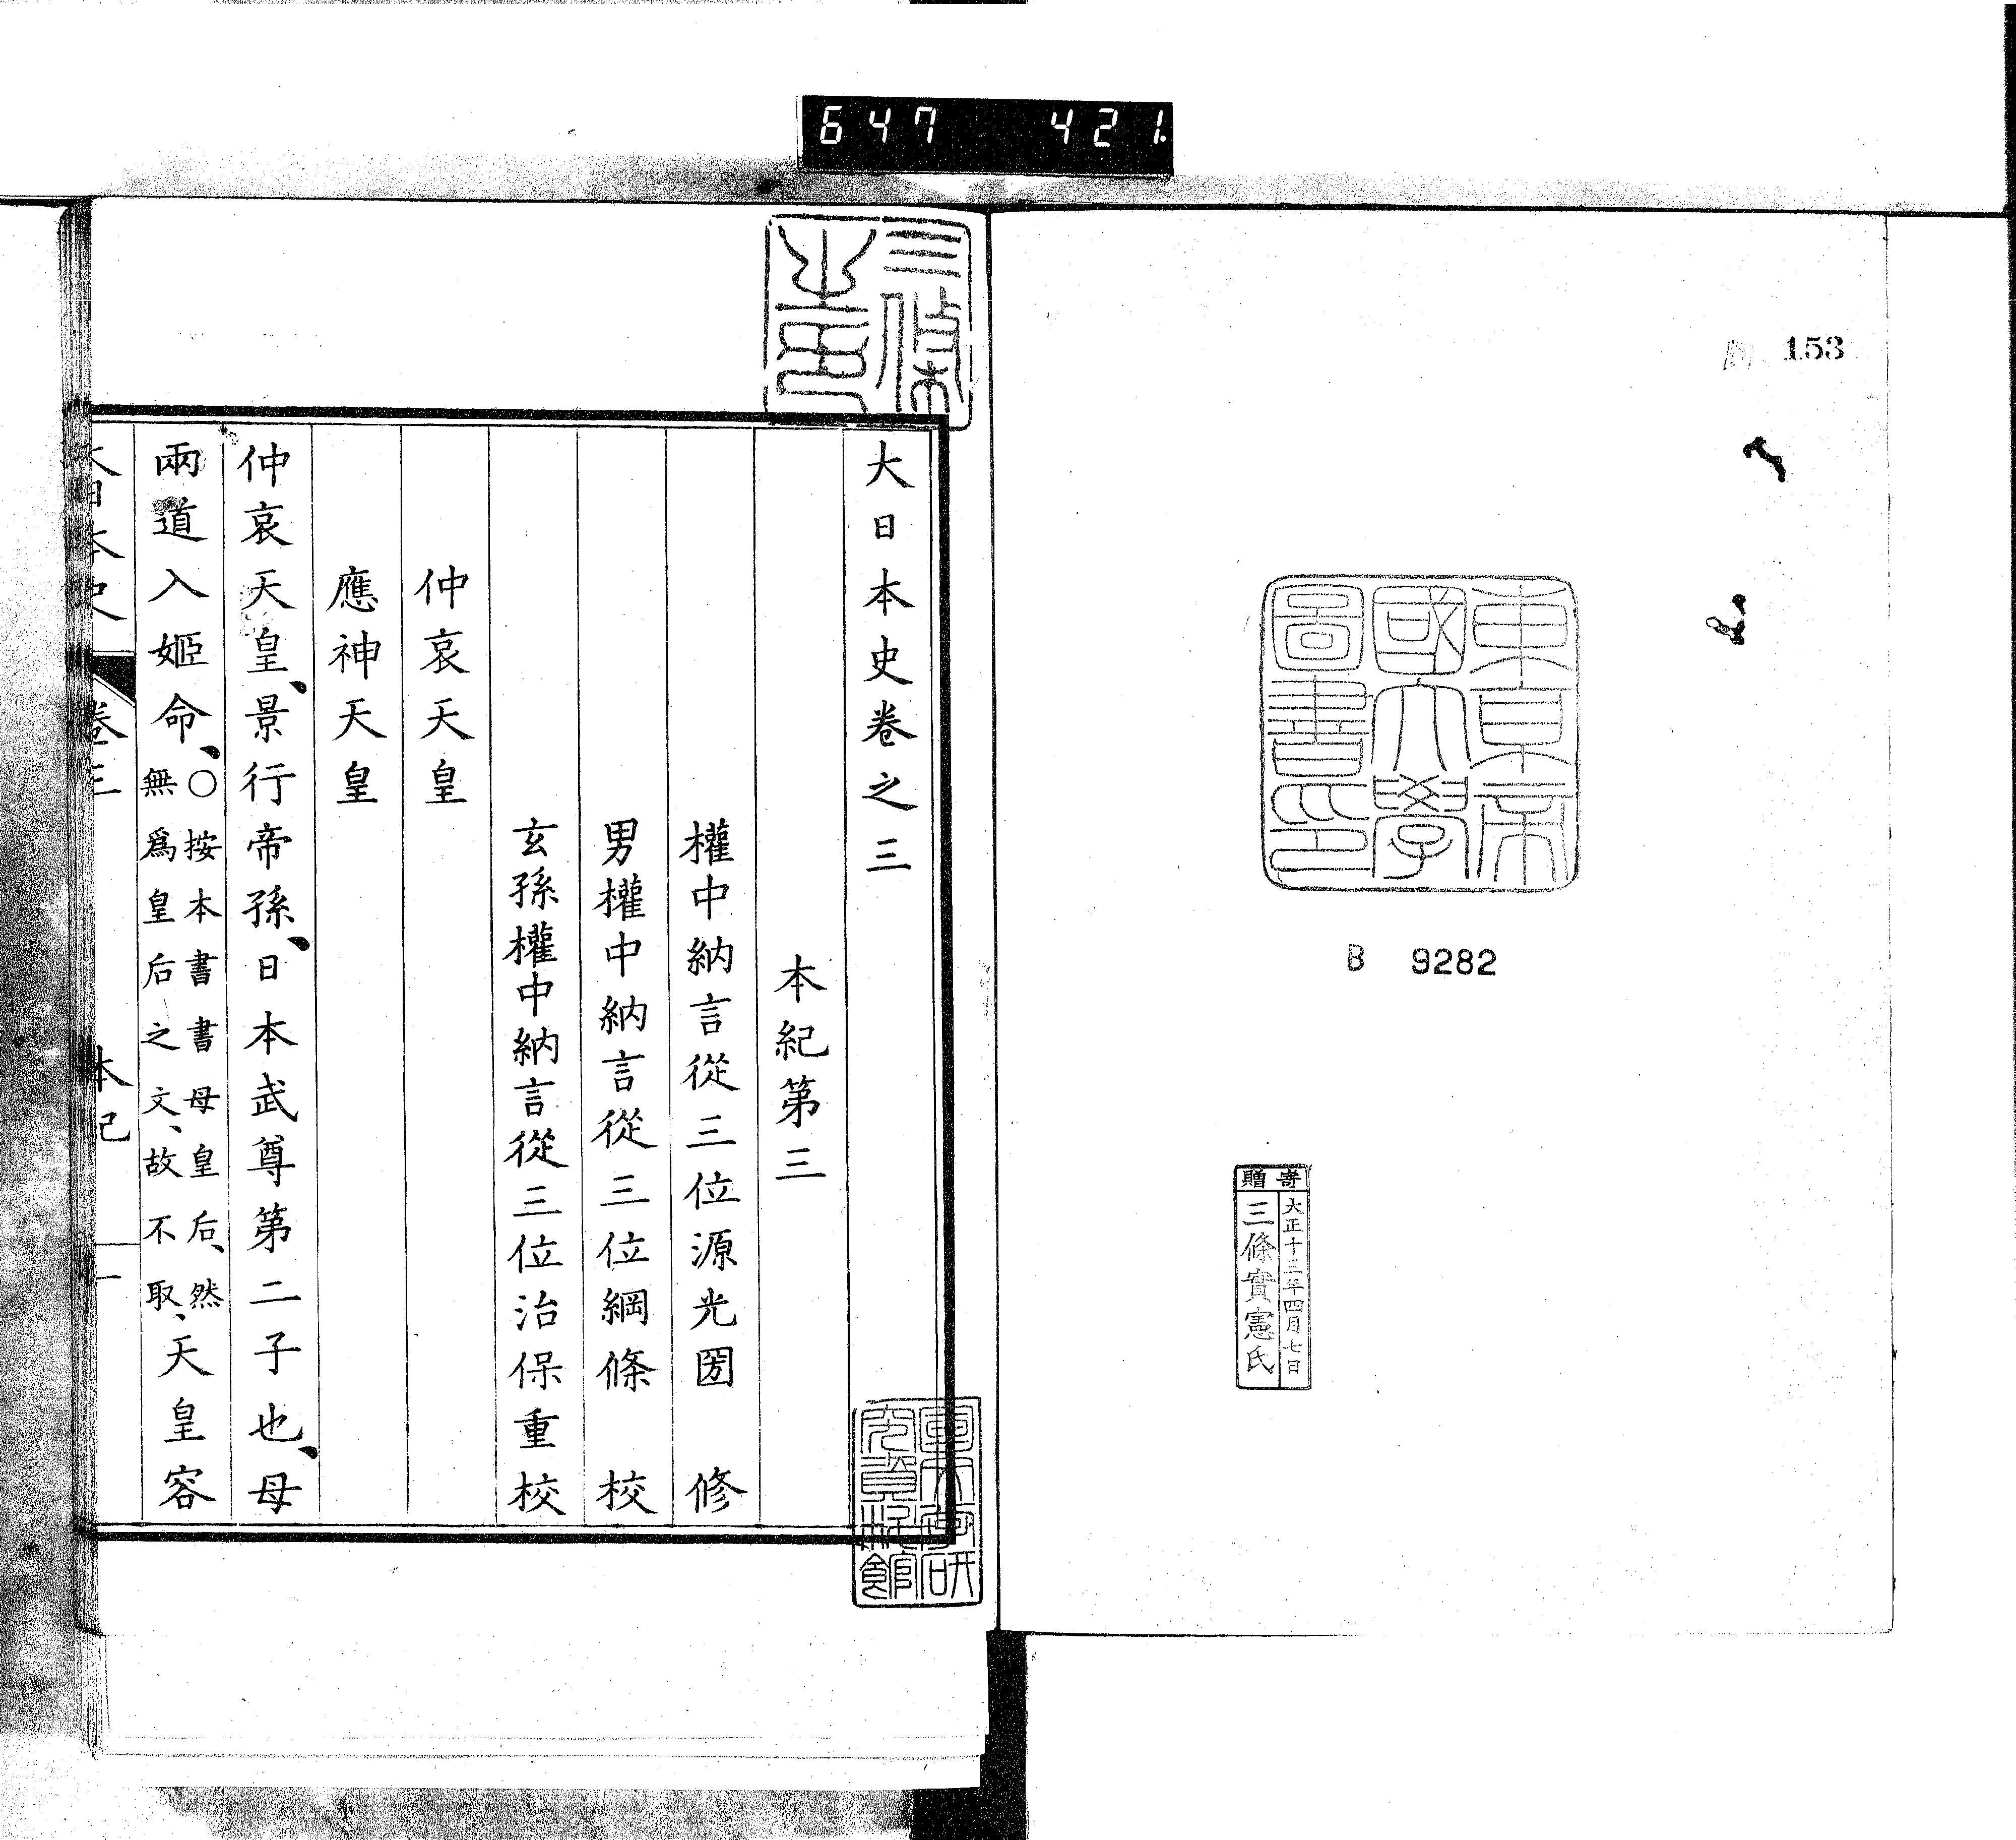 647 421.
153
東京帝
國大學
圖書印
B 9282
寄贈
大正十三年四月七日
三條實憲氏
三條
大日本史卷之三
本紀第三
權中納言從三位源光圀 修
男權中納言從三位綱條 校
玄孫權中納言從三位治保重校
仲哀天皇
應神天皇
仲哀天皇、景行帝孫、日本武尊第二子也、母
兩道入姬命、
○按本書書母皇后、然
無爲皇后之文、故不取、
天皇容
大日本史 卷三 本紀 一
國文學研
究資料館